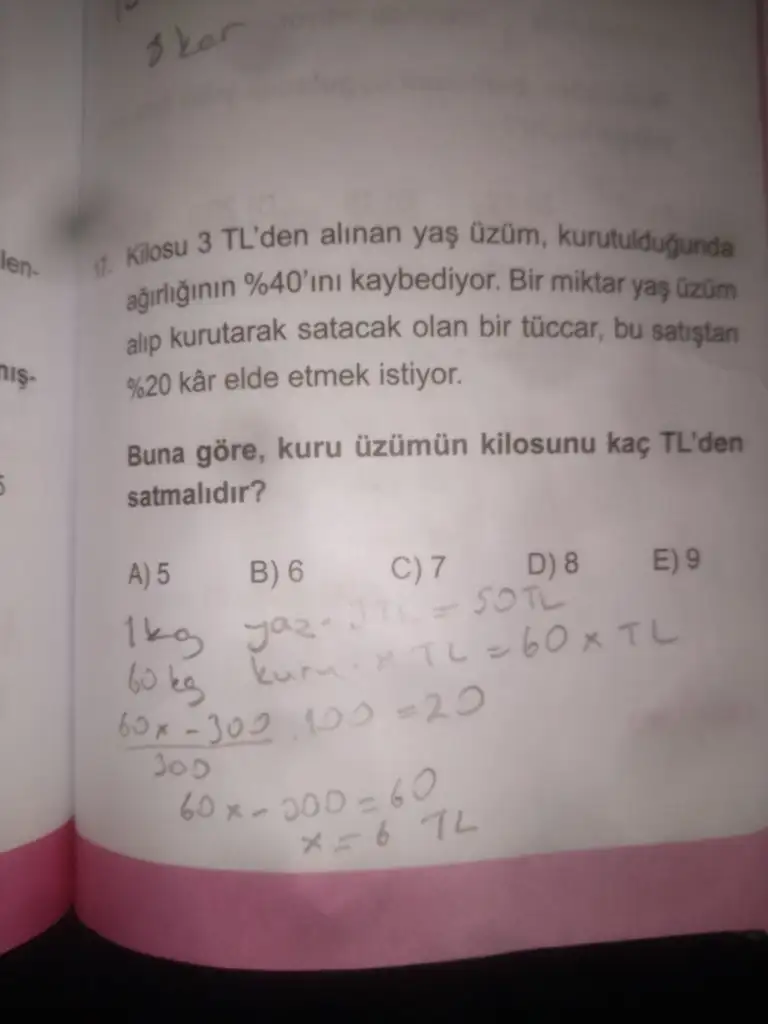 3 kar
len-
17. Kilosu 3 TL'den alınan yaş üzüm, kurutulduğunda
ağırlığının %40'ını kaybediyor. Bir miktar yaş üzüm
alıp kurutarak satacak olan bir tüccar, bu satıştan
mış-
%20 kâr elde etmek istiyor.
Buna göre, kuru üzümün kilosunu kaç TL'den
5
satmalıdır?
A) 5 B) 6 C) 7 D) 8 E) 9
1kg yaz. 3TL = 50TL
60 kg kuru. x TL = 60x TL
60x - 300 . 100 = 20
300
60x - 300 = 60
x = 6 TL